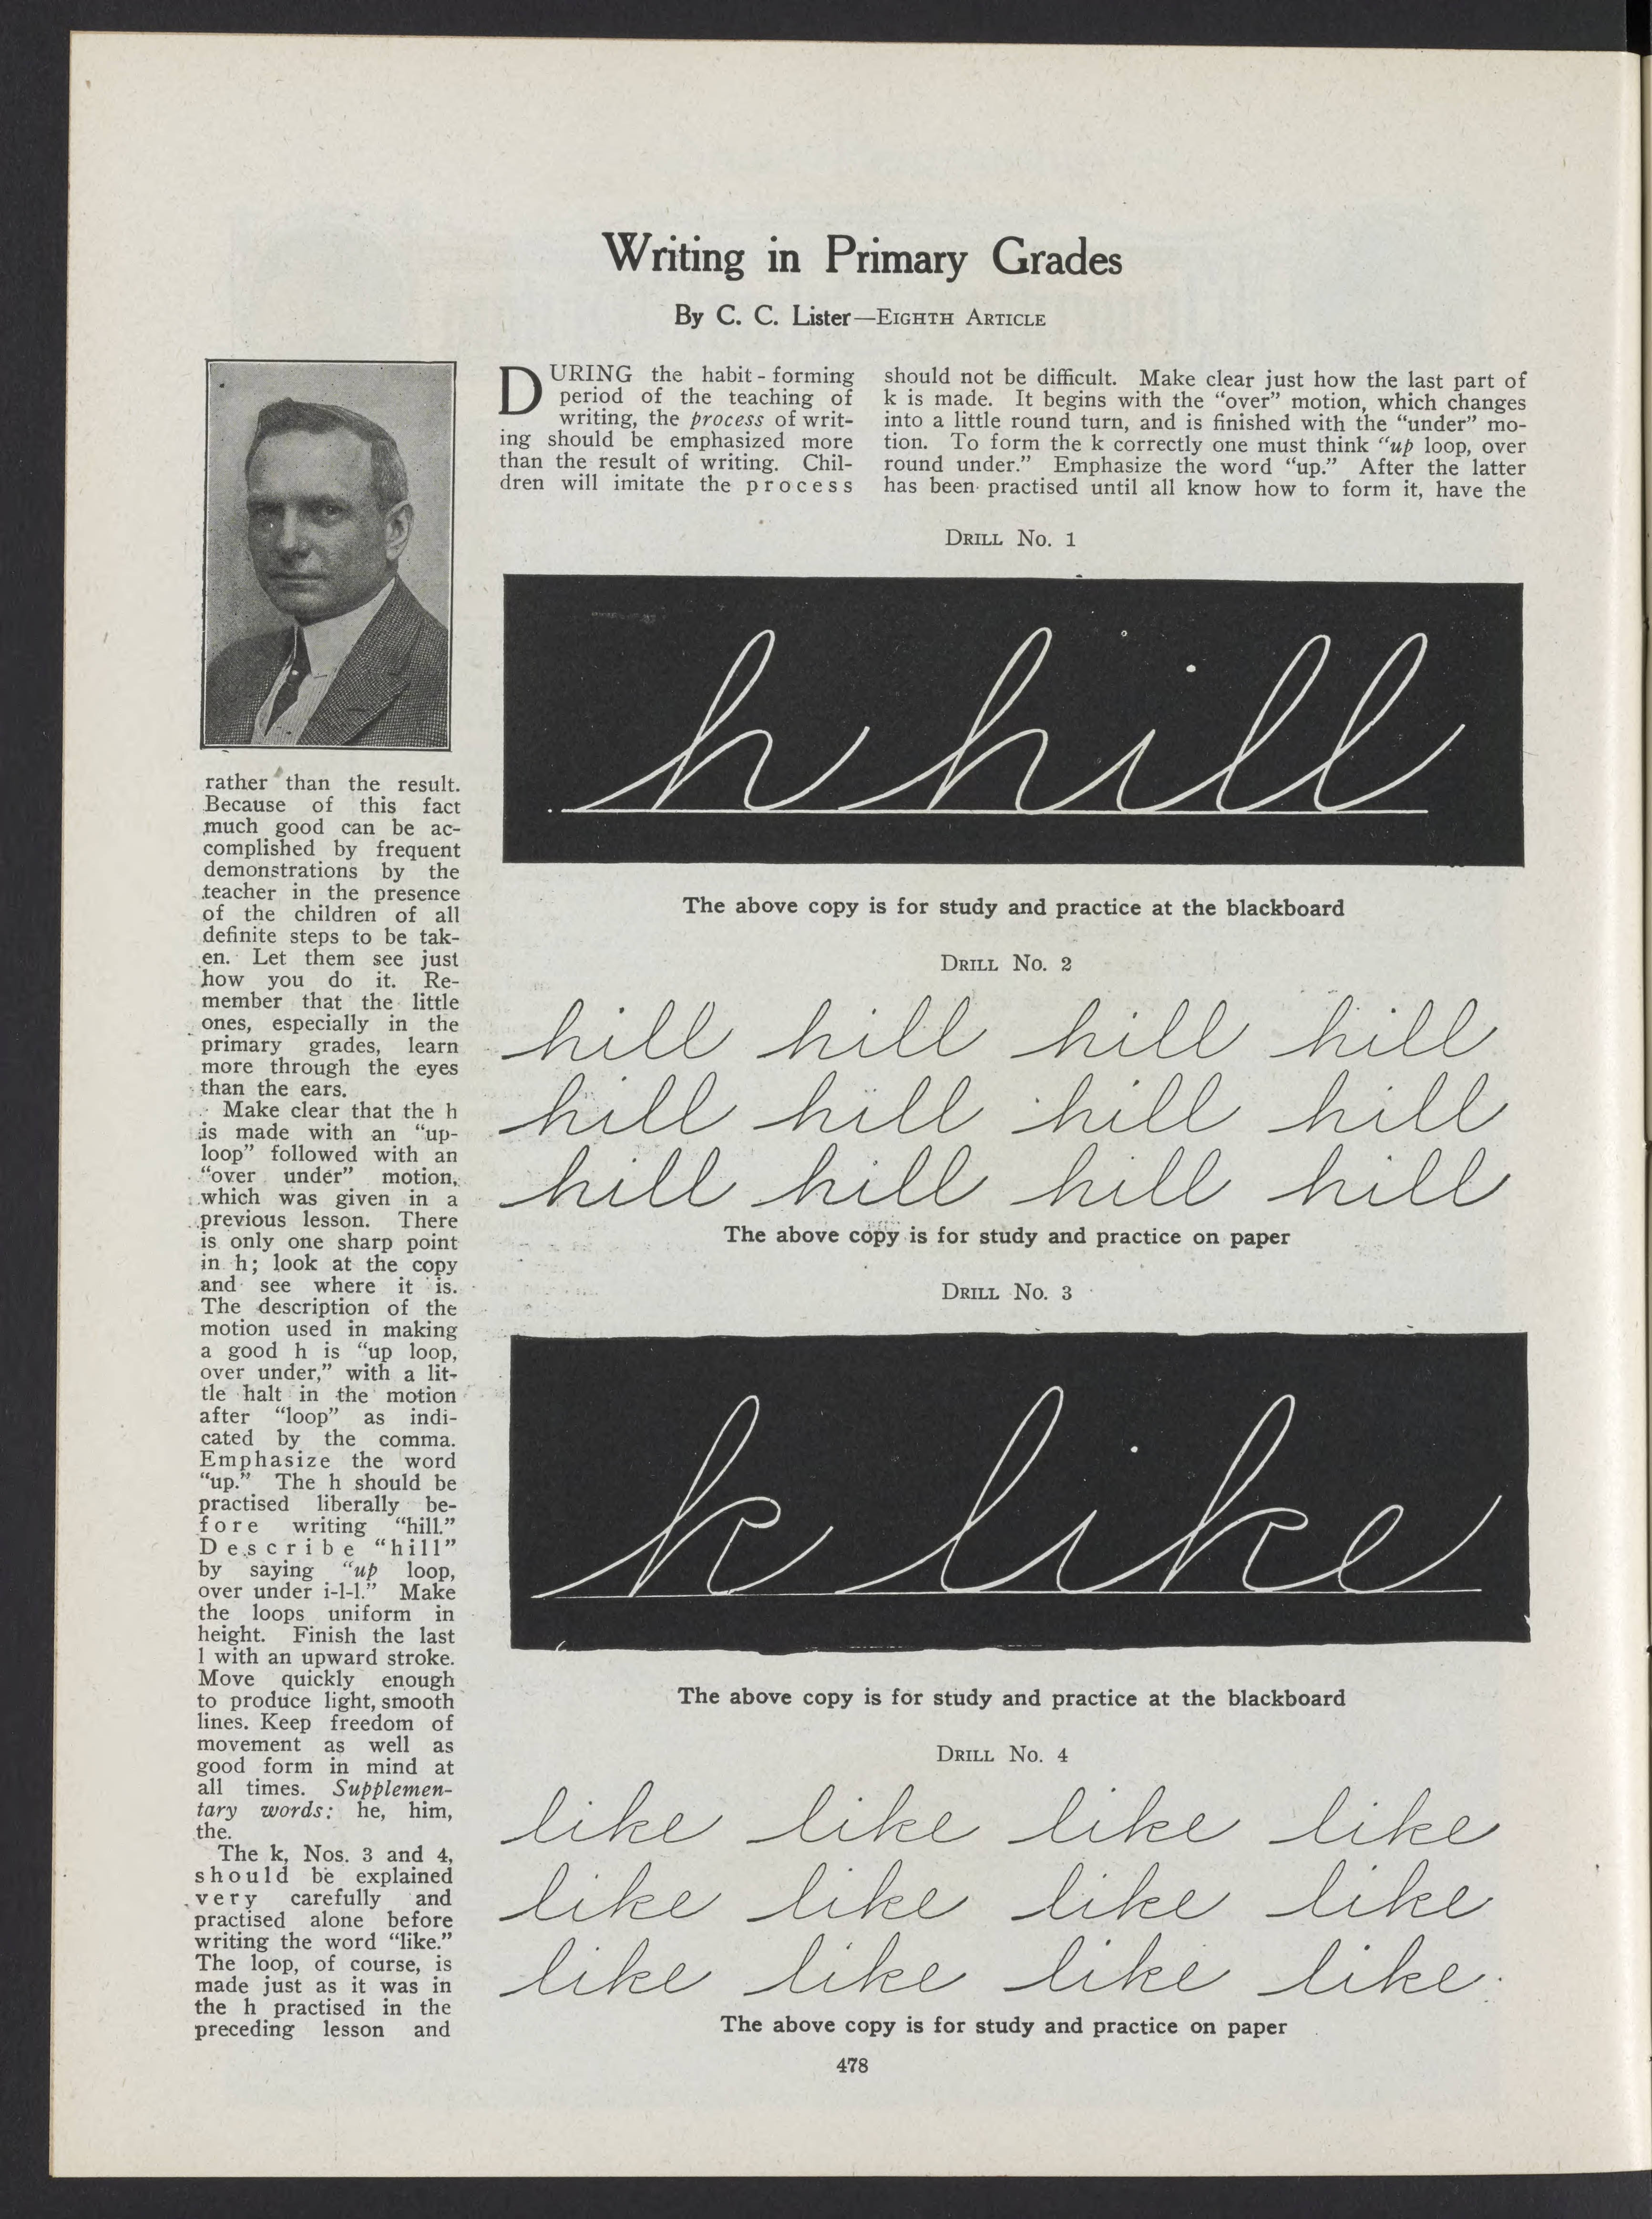 Writing in Primary Grades
By C. C. Lister—Eighth Article
DURING the habit-forming
period of the teaching of
writing, the process of writ-
ing should be emphasized more
than the result of writing. Chil-
dren will imitate the process
rather than the result.
Because of this fact
much good can be ac-
complished by frequent
demonstrations by the
teacher in the presence
of the children of all
definite steps to be tak-
en. Let them see just
how you do it. Re-
member that the little
ones, especially in the
primary grades, learn
more through the eyes
than the ears.
Make clear that the h
is made with an “up-
loop” followed with an
“over under” motion,
which was given in a
previous lesson. There
is only one sharp point
in h; look at the copy
and see where it is.
The description of the
motion used in making
a good h is “up loop,
over under,” with a lit-
tle halt in the motion
after “loop” as indi-
cated by the comma.
Emphasize the word
“up.” The h should be
practised liberally be-
fore writing “hill.”
Describe “hill”
by saying “up loop,
over under i-l-l.” Make
the loops uniform in
height. Finish the last
l with an upward stroke.
Move quickly enough
to produce light, smooth
lines. Keep freedom of
movement as well as
good form in mind at
all times. Supplemen-
tary words: he, him,
the.
The k, Nos. 3 and 4,
should be explained
very carefully and
practised alone before
writing the word “like.”
The loop, of course, is
made just as it was in
the h practised in the
preceding lesson and
should not be difficult. Make clear just how the last part of
k is made. It begins with the “over” motion, which changes
into a little round turn, and is finished with the “under” mo-
tion. To form the k correctly one must think “up loop, over
round under.” Emphasize the word “up.” After the latter
has been practised until all know how to form it, have the
Drill No. 1
h hill
The above copy is for study and practice at the blackboard
Drill No. 2
hill hill hill hill
hill hill hill hill
hill hill hill hill
The above copy is for study and practice on paper
Drill No. 3
k like
The above copy is for study and practice at the blackboard
Drill No. 4
like like like like
like like like like
like like like like
The above copy is for study and practice on paper
478